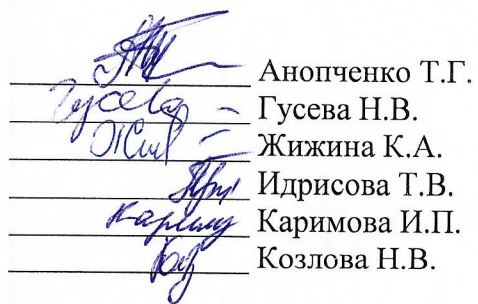 Анопченко Т.Г.
Гусева Гусева Н.В.
Жижина К.А.
Идрисова Т.В.
Каримова И.П.
Козлова Н.В.